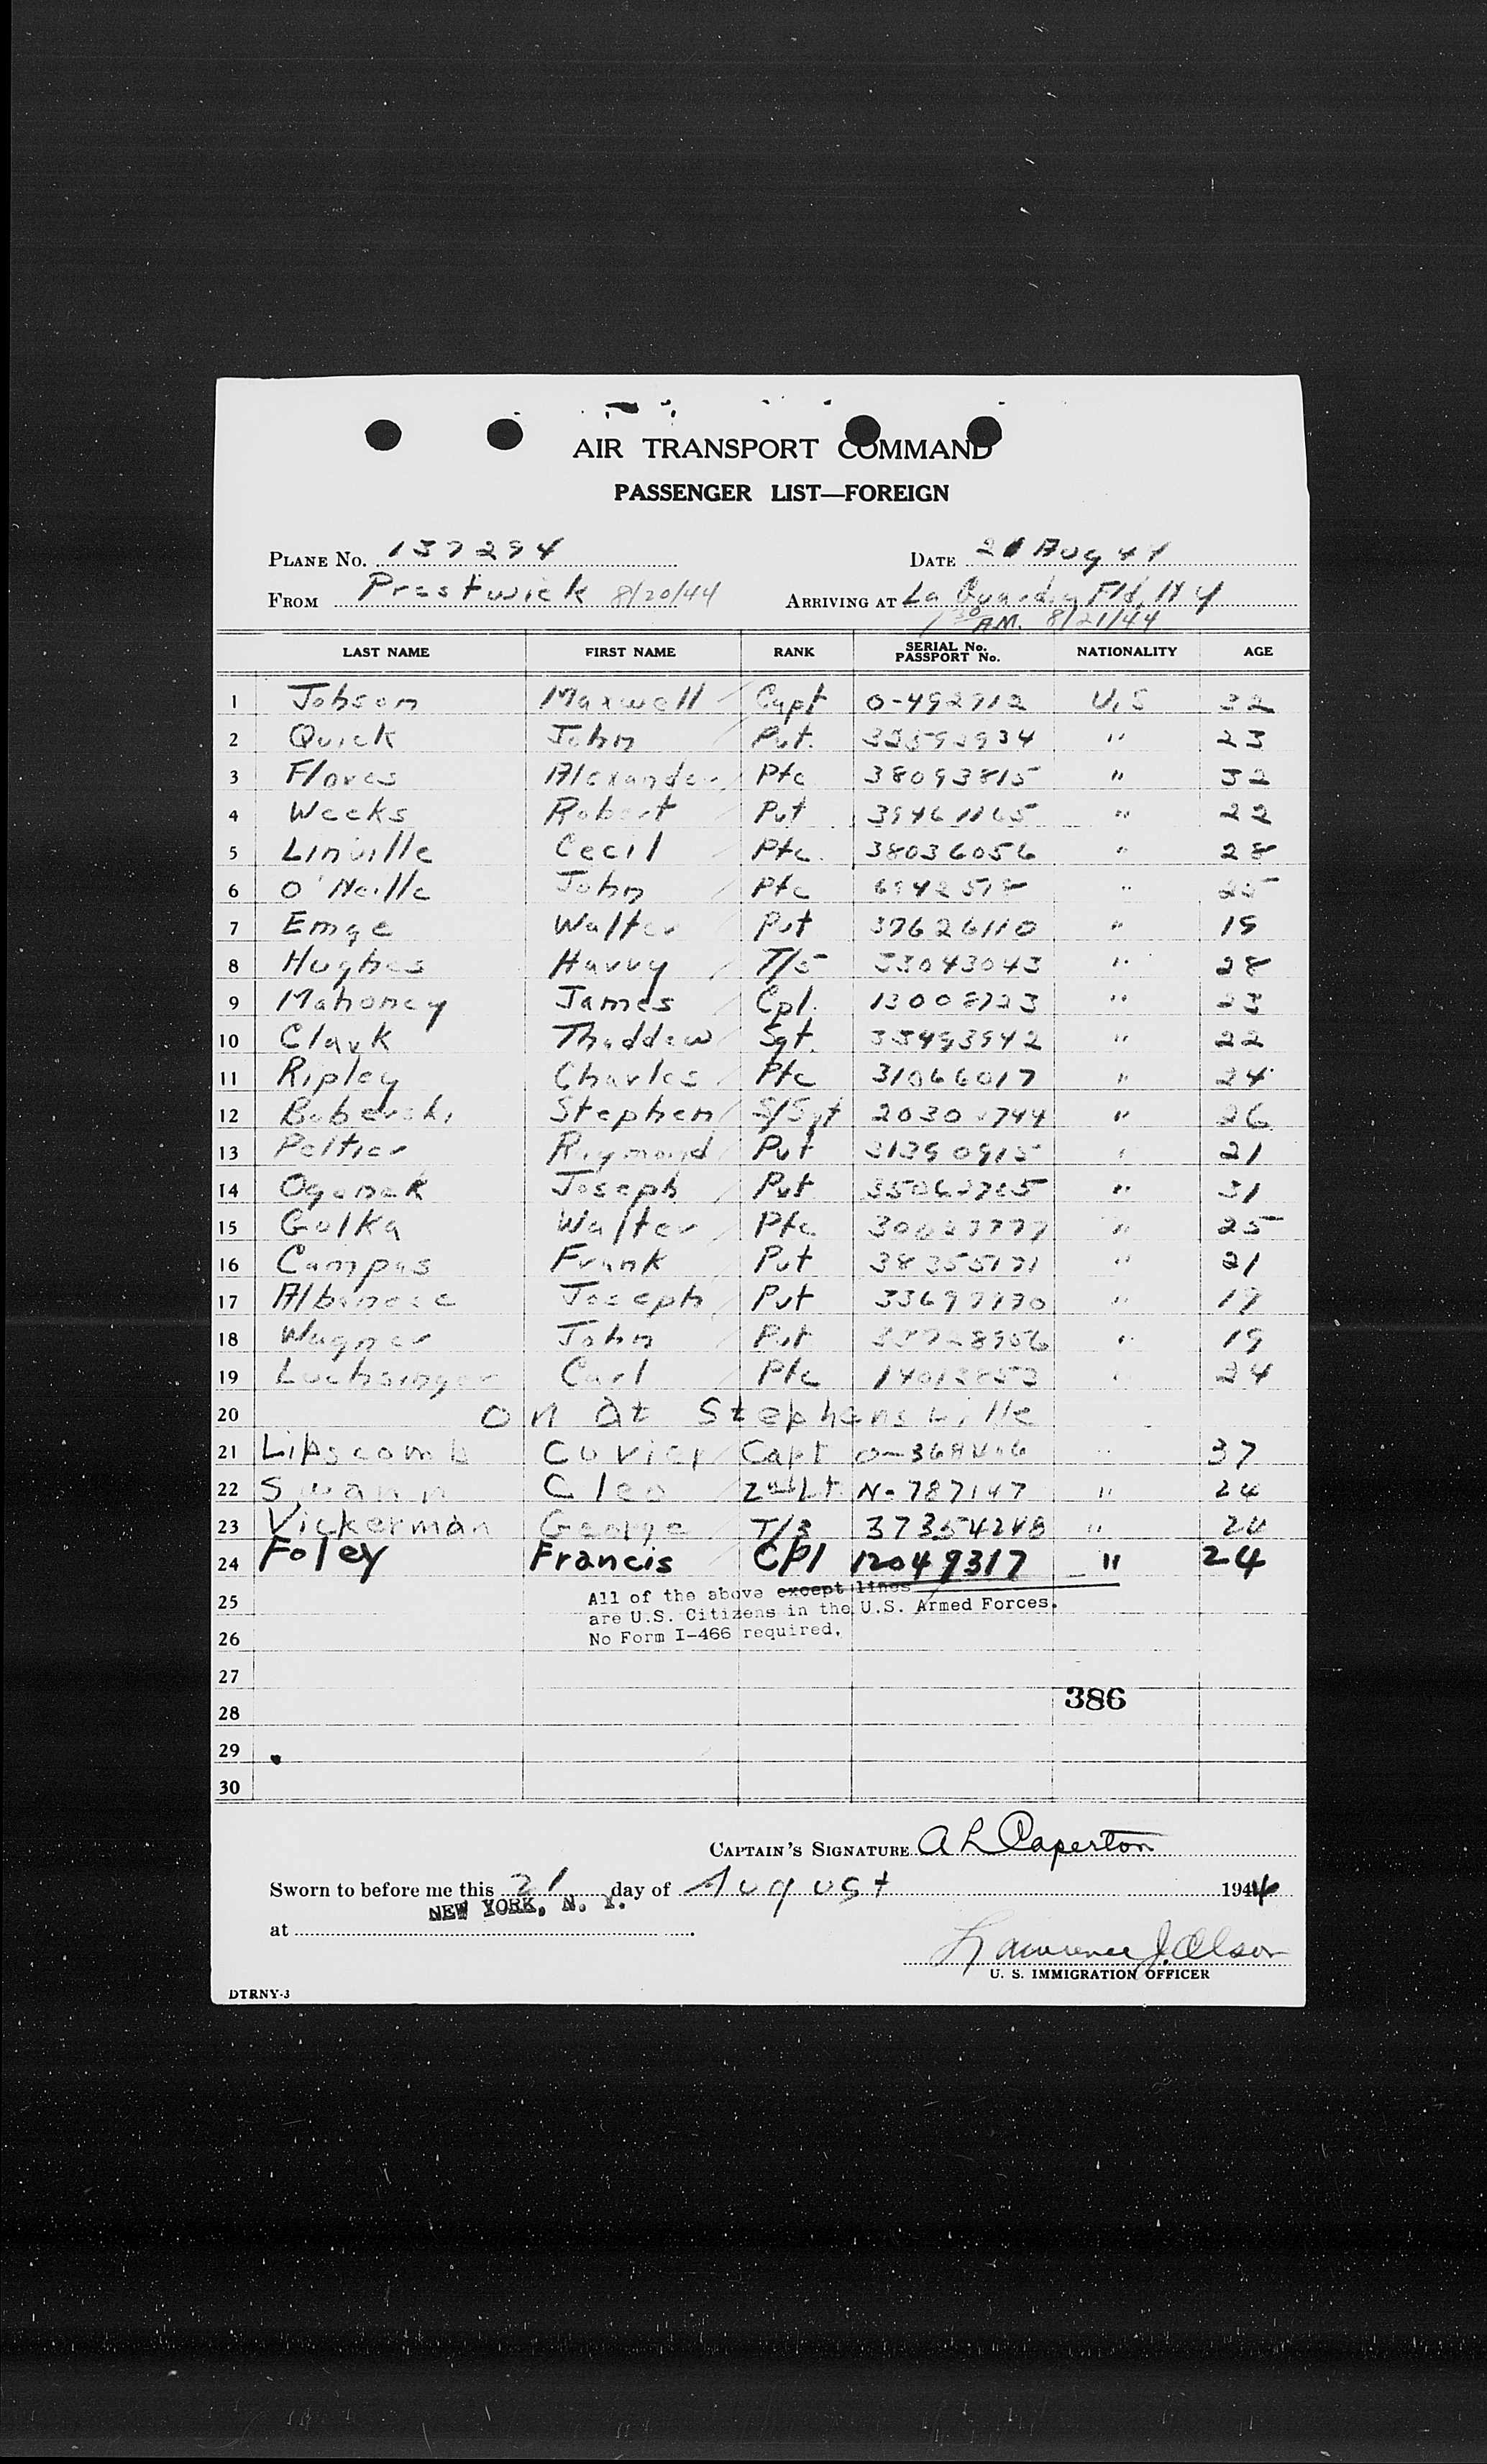 AIR TRANSPORT COMMAND
PASSENGER LIST—FOREIGN
PLANE No. 137294 DATE 21 Aug 44
FROM Prestwick 8/20/44 ARRIVING AT La Guardia Fld, N Y
1 30 AM. 8/21/44
LAST NAME FIRST NAME RANK SERIAL No. PASSPORT No. NATIONALITY AGE
1 Jobson Maxwell Capt O-492912 U.S 32
2 Quick John Pvt. " 23
3 Flores Alexander Pfc 38093815 " 32
4 Weeks Robert Pvt 39461165 " 22
5 Linville Cecil Pfc. 38036056 " 28
6 O'Neille John Pfc " 25
7 Emge Walter Pvt 37626110 " 19
8 Hughes Harry T/5 33043043 " 28
9 Mahoney James Cpl. 13008723 " 23
10 Clark Sgt. 35493942 " 22
11 Ripley Charles Pfc 31066017 " 24
12 Stephen S/Sgt " 26
13 Peltier Raymond Pvt 31390915 " 21
14 Oganek Joseph Pvt " 31
15 Golka Walter Pfc. " 25
16 Campos Frank Pvt " 21
17 Albanese Joseph Pvt " 19
18 Wagner John Pvt " 19
19 Luchsinger Carl Pfc " 24
20 On At Stephensville
21 Lipscomb Cuvier Capt " 37
22 Swann Cleo 2nd Lt N-787147 " 24
23 Vickerman George T/3 37354248 " 24
24 Foley Francis Cpl 12049317 " 24
25 All of the above except lines
are U.S. Citizens in the U.S. Armed Forces.
26 No Form I-466 required.
27
386
28
29
30
CAPTAIN'S SIGNATURE A L Caperton
Sworn to before me this 21 day of August 1944
NEW YORK, N. Y.
at
Lawrence J. Olson
U. S. IMMIGRATION OFFICER
DTRNY-3